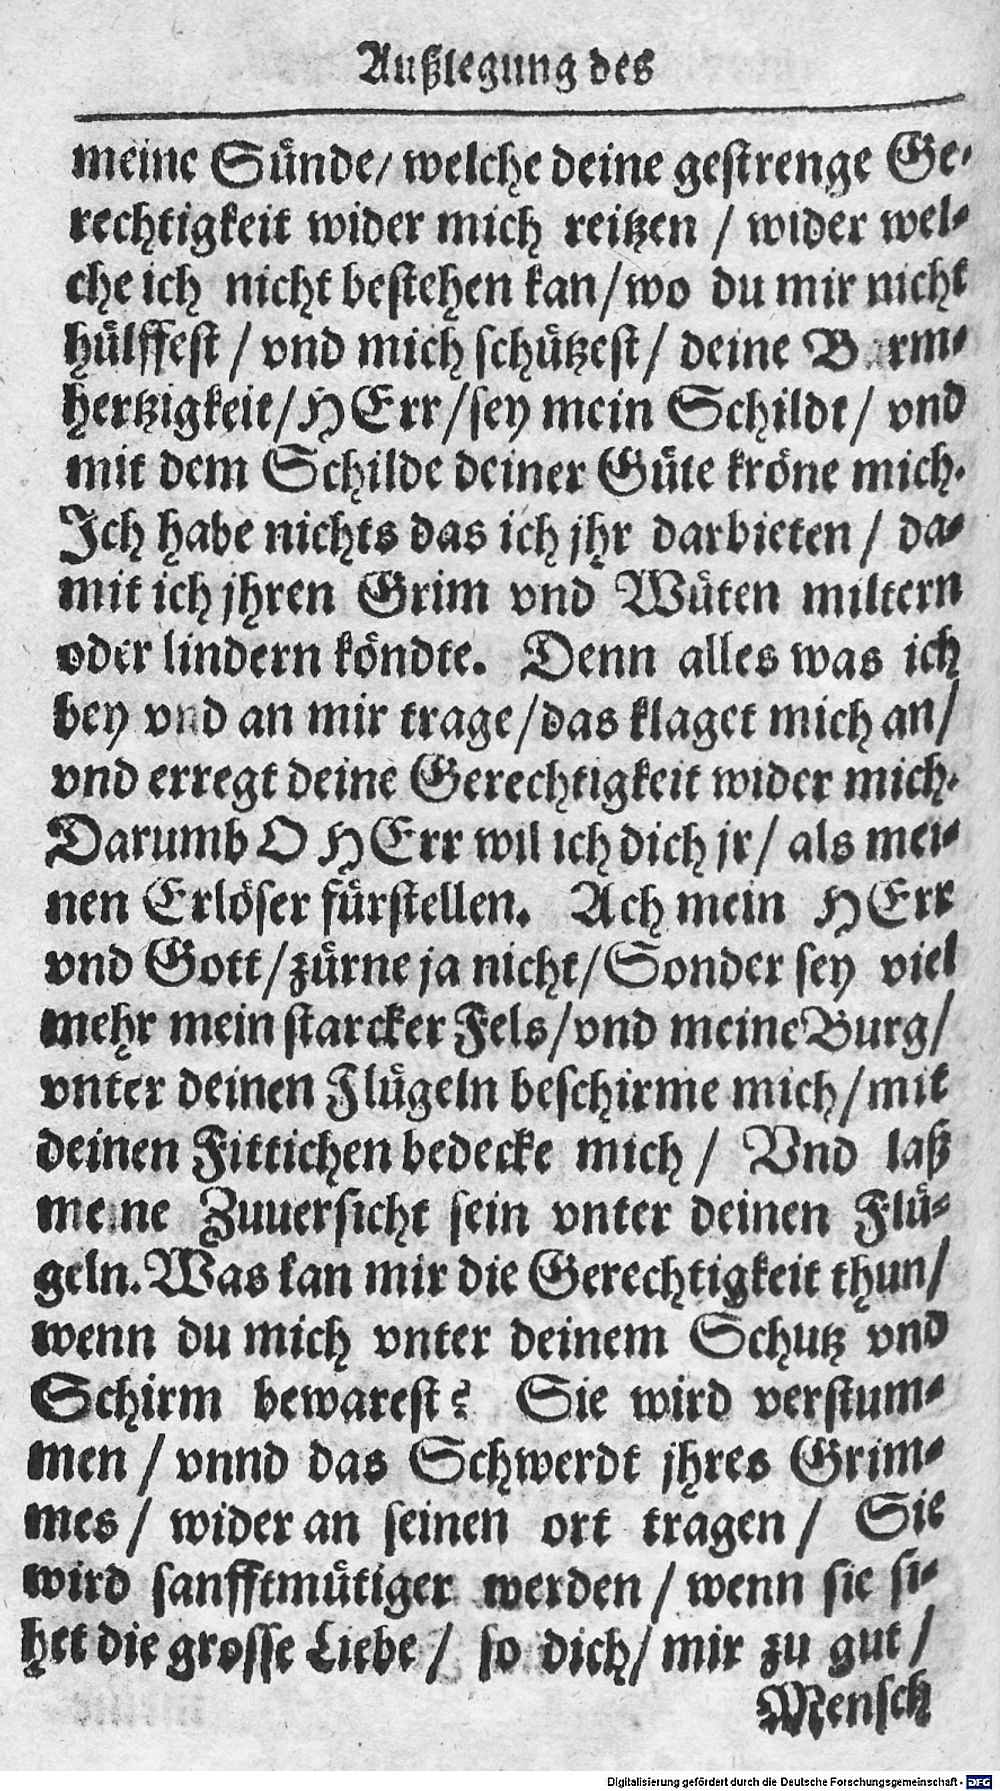 Außlegung des
meine Sünde/ welche deine gestrenge Ge-
rechtigkeit wider mich reitzen / wider wel-
che ich nicht bestehen kan/ wo du mir nicht
hülffest / vnd mich schützest / deine Barm-
hertzigkeit/ HErr / sey mein Schildt / vnd
mit dem Schilde deiner Güte kröne mich.
Ich habe nichts das ich jhr darbieten / da-
mit ich jhren Grim vnd Wüten miltern
oder lindern köndte. Denn alles was ich
bey vnd an mir trage / das klaget mich an/
vnd erregt deine Gerechtigkeit wider mich.
Darumb O HErr wil ich dich jr / als mei-
nen Erlöser fürstellen. Ach mein HErr
vnd Gott / zürne ja nicht / Sonder sey viel
mehr mein starcker Fels / vnd meine Burg/
vnter deinen Flügeln beschirme mich / mit
deinen Fittichen bedecke mich / Vnd laß
meine Zuuersicht sein vnter deinen Flü-
geln. Was kan mir die Gerechtigkeit thun/
wenn du mich vnter deinem Schutz vnd
Schirm bewarest? Sie wird verstum-
men / vnnd das Schwerdt jhres Grim-
mes / wider an seinen ort tragen / Sie
wird sanfftmütiger werden / wenn sie si-
het die grosse Liebe / so dich / mir zu gut /
Mensch
Digitalisierung gefördert durch die Deutsche Forschungsgemeinschaft - DFG